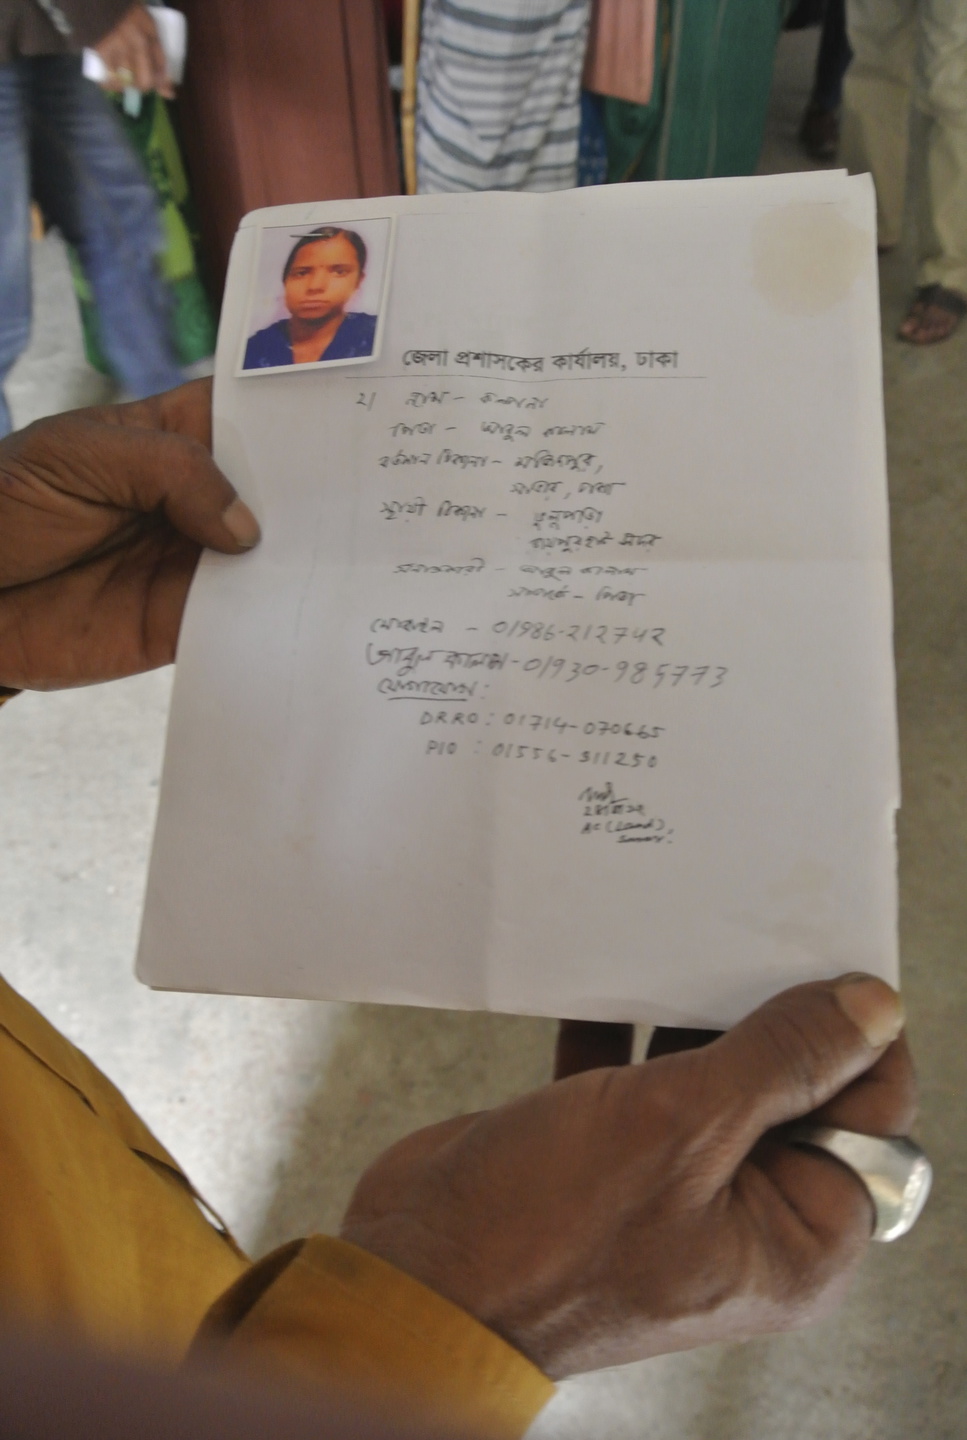 জেলা প্রশাসকের কার্যালয়, ঢাকা
২। নাম - কল্পনা
পিতা - আবুল কালাম
বর্তমান ঠিকানা - মজিদপুর,
সাভার, ঢাকা
স্থায়ী ঠিকানা -
জয়পুরহাট সদর
সনাক্তকারী - আবুল কালাম
সম্পর্ক - পিতা
মোবাইল - 01986-212742
আবুল কালাম - 01930-985773
যোগাযোগ:
DRRO: 01714-070665
PIO : 01556-311250
AC (Land),
Savar.